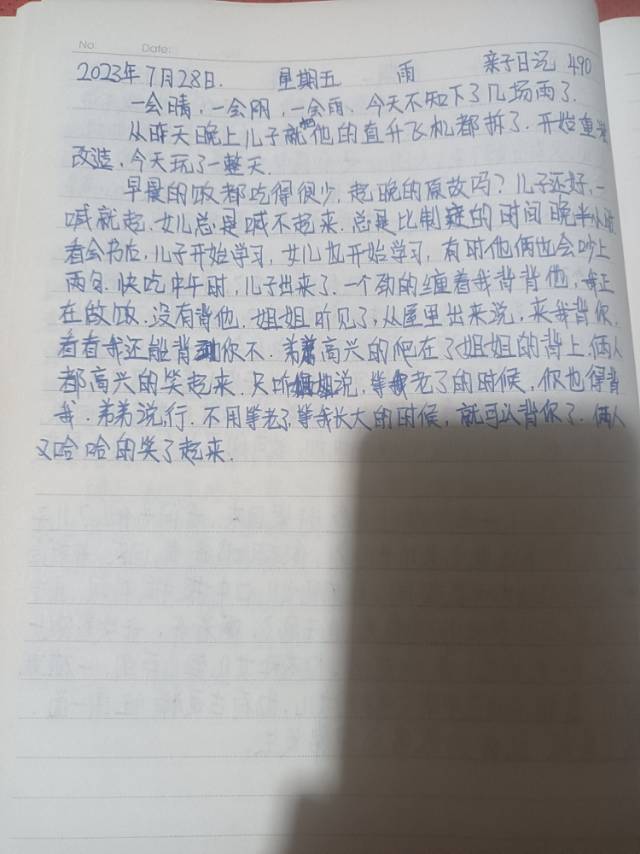 No.   Date:
2023年7月28日.   星期五   雨   亲子日记 490
一会晴,一会阴,一会雨、今天不知下了几场雨了.
从昨天晚上儿子就把他的直升飞机都拆了.开始重装
改造,今天玩了一整天.
早晨的饭都吃得很少,起晚的原故吗?儿子还好,一
喊就起.女儿总是喊不起来.总是比制定的时间晚半小时
看会书后,儿子开始学习,女儿也开始学习,有时他俩也会吵上
两句.快吃中午时,儿子出来了.一个劲的缠着我背背他,我正
在做饭.没有背他.姐姐听见了,从屋里出来说,来我背你,
看看我还能背动你不.弟弟高兴的爬在了姐姐的背上.俩人
都高兴的笑起来.只听姐姐说,等我老了的时候,你也得背
我.弟弟说行.不用等老了,等我长大的时候,就可以背你了.俩人
又哈哈的笑了起来.